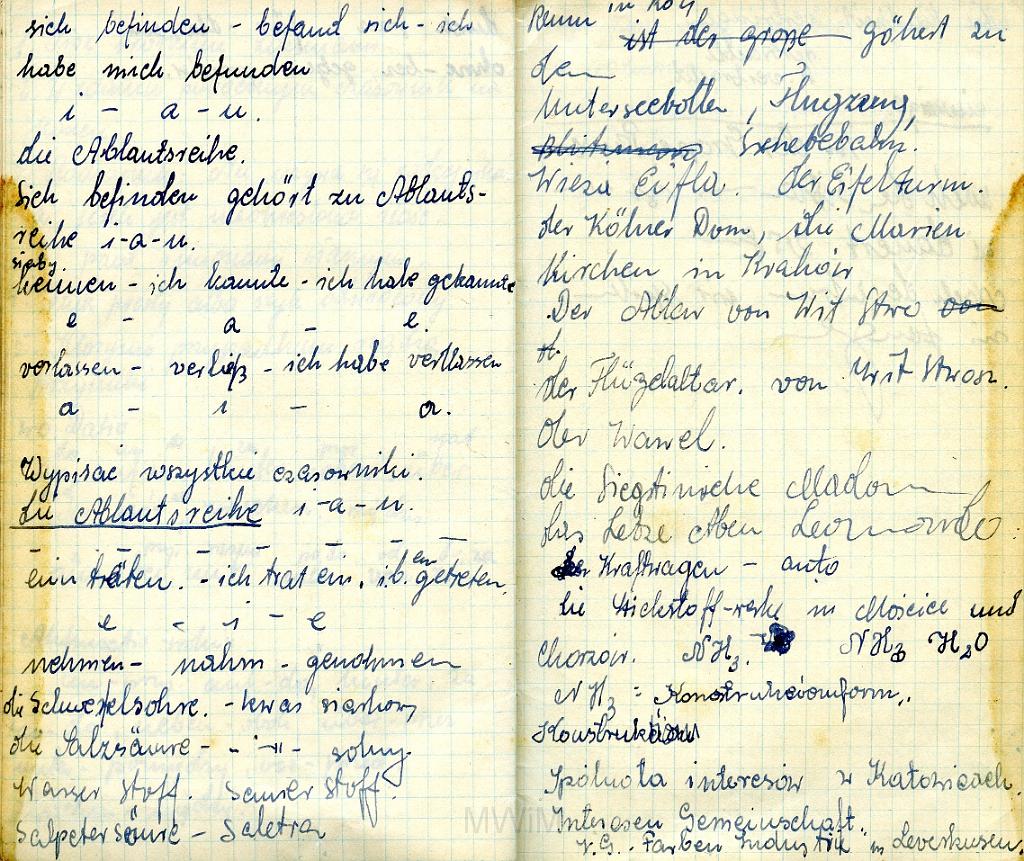 sich befinden - befand sich - ich
habe mich befunden
i - a - u.
die Ablautsreihe.
Sich befinden gehört zu Ablauts-
reihe i-a-u.
kennen - ich kannte - ich habe gekannte
e - a - e.
vorlassen - verließ - ich habe verllassen
a - i - a.
Wypisac wszystkie czasowniki.
die Ablautsreihe i-a-u.
ein träten. - ich trat ein. i.b. eingetreten.
e - i - e
nehmen - nahm - genohmen
die Schwefelsohre. - kwas siarkowy
die Salzsäure - - " - solny.
Wasser stoff. Saurer stoff.
Salpetersäure - Saletra
ist des große göhert zu
den
Unterseebotten, Flugzeug,
Schebebahn.
Wieża Eifla. der Eifelturm.
der Kölner Dom, die Marien
Kirchen in Kraków
Der Altar von Wit Stwo von
der Flügelaltar. von Wit Stwosz.
der Wawel.
die Siegstinische Madonn
das Letze Aben Leonardo
Kraftwagen - auto
die Stickstoff-werke in Mościce und
Chorzów. NH3. NH3 H2O
NH3 = Konstrukcionform,.
Konstruktion
Spólnota interesów w Katowicach.
Interesen Gemeinschaft.
I.G. - Farben Industrie in Leverkusen.
MWiM